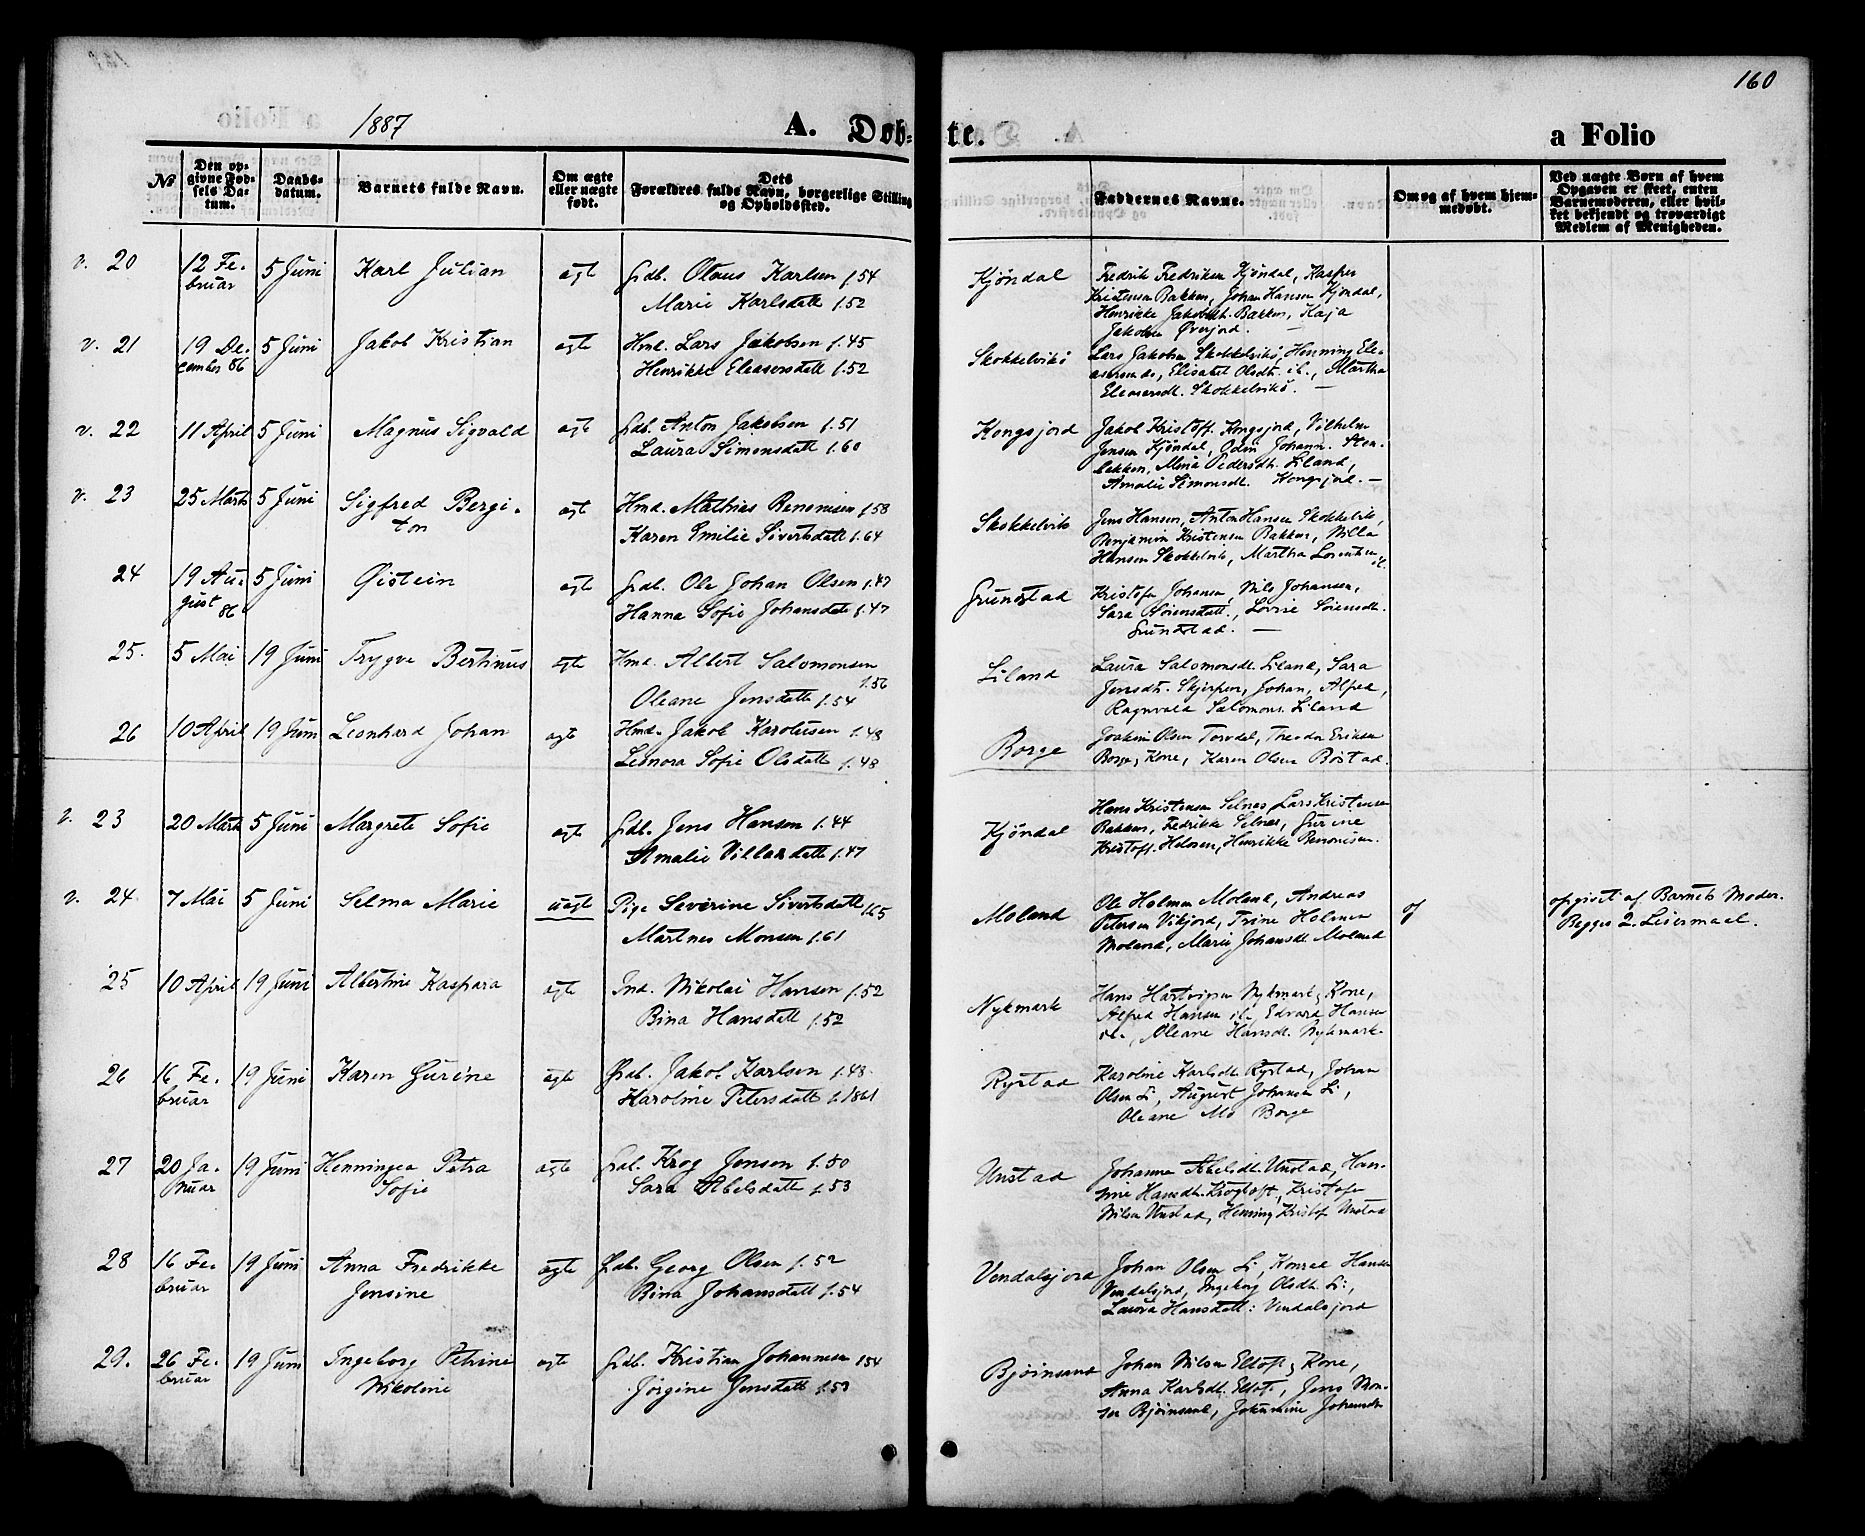 160
1887 A. Døb-te. a Folio
No
Den opgivne Fødsels Datum.
Daabsdatum.
Barnets fulde Navn.
Om ægte eller uægte født.
Dets Forældres fulde Navn, borgerlige Stilling og Opholdssted.
Faddernes Navne.
Om og af hvem hjemmedøbt.
Ved uægte Børn af hvem Opgaven er skeet, enten Barnemoderen, eller hvilket bekjendt og troværdigt Medlem af Menigheden.
v. 20 12 Fe- 5 Juni Karl Julian ægte Gdb. Olaus Karlsen f.54 Kjøndal Fredrik Fredriksen Kjøndal, Kasper
bruar Marie Karlsdatt f.52 Kristensen Bakken, Johan Hansen Kjøndal,
Henrikke Jakobsdt. Bakken, Kaja
Jakobsen Øverjord.
v. 21 19 De- 5 Juni Jakob Kristian ægte Hmd. Lars Jakobsen f.45 Skokkelvik Lars Jakobsen Skokkelvik, Henning Ele-
cember 86 Henrikke Eleasersdatt f.52 asersen do, Elisabet Olsdt. il., Martha
Eleasersdt. Skokkelvik. —
v. 22 11 April 5 Juni Magnus Sigvald ægte Gdb. Anton Jakobsen f.51 Kongsjord Jakob Kristoff. Kongsjord, Vilhelm
Laura Simonsdatt f.60 Jensen Kjøndal, Odin Johann. Sten-
bakken, Mina Pedersdt. Liland,
Amalie Simonsdt. Kongsjord. —
v. 23 25 Marts 5 Juni Sigfred Bergi- ægte Hmd. Mathias Benonisen f.58 Skokkelvik Jens Hansen, Anton Hansen Skokkelvik,
ton Karen Emilie Sivertsdatt f.64 Benjamin Kristensen Bakken, Nilla
Hansen Skokkelvik, Martha Lorentsen il.
24 19 Au- 5 Juni Øistein ægte Gdb. Ole Johan Olsen f.47 Grundstad Kristofer Johansen, Nils Johansen,
gust 86 Hanna Sofie Johansdatt f.47 Sara Sørensdatt, Lovise Sørensdt.
Grundstad. —
25. 5 Mai 19 Juni Trygve Bertinus ægte Hmd. Albert Salomonsen f.56 Liland Laura Salomonsdt. Liland, Sara
Oleane Jensdatt f.54 Jensdt. Skjerpen, Johan, Alfred,
Ragnvald Salomons. Liland
26 10 April 19 Juni Leonhard Johan ægte Hmd. Jakob Karolusen f.48 Borge Joakim Olsen Torvdal, Theodor Eriksen
Leonora Sofie Olsdatt f.48 Borge, Kone, Karen Olsen Bøstad.
v. 23 20 Marts 5 Juni Margrete Sofie ægte Gdb. Jens Hansen f.44 Kjøndal Hans Kristensen Selnes, Lars Kristensen
Amalie Villasdatt f.47 Bakken, Fedrikke Selnes, Gurine
Kristoff. Helosen, Henrikke Benonisen.
v. 24 7 Mai 5 Juni Selma Marie uægte Pige Severine Sivertsdatt f.65 Moland Ole Holmen Moland, Andreas of opgivet af Barnets Moder.
Martnes Monsen f.61 Petersen Vikjord, Trine Holmen Begges 2. Leiermaal.
Moland, Marie Johansdt. Moland
25 10 April 19 Juni Albertine Kaspara ægte Ind. Nikolai Hansen f.52 Nykmark Hans Hartvigsen Nykmark, Kone,
Bina Hansdatt f.52 Alfred Hansen il., Edvard Hansen
il., Oleane Hansdt. Nykmark.
26 16 Fe- 19 Juni Karen Gurine ægte Gdb. Jakob Karlsen f.48 Rystad Karoline Karlsdt. Rystad, Johan
bruar Karoline Petersdatt f.1861 Olsen Li, August Johansen Li,
Oleane Mo Borge
27 20 Ja- 19 Juni Henningea Petra ægte Gdb. Krog Jensen f.50 Unstad Johanna Abelsdt. Unstad, Han-
nuar Sofie Sara Abelsdatt f.53 sine Hansdt. Krogtoft, Kristofer
Nilsen Unstad, Henning Kristof. Unstad
28 16 Fe- 19 Juni Anna Fredrikke ægte Gdb. Georg Olsen f.52 Vendalsjord Johan Olsen Li, Konrad Hansen
bruar Jensine Bina Johansdatt f.54 Vendalsjord, Ingeborg Olsdt. Li,
Laura Hansdatt: Vendalsjord
29. 26 Fe- 19 Juni Ingeborg Petrine ægte Gdb. Kristian Johannesen f.54 Bjøinsand Johan Nilsen Eltoft, Kone,
bruar Nikoline Jørgine Jensdatt f.53 Anna Karlsdt. Eltoft, Jens Mon-
sen Bjøinsand, Johannine Johansdt.